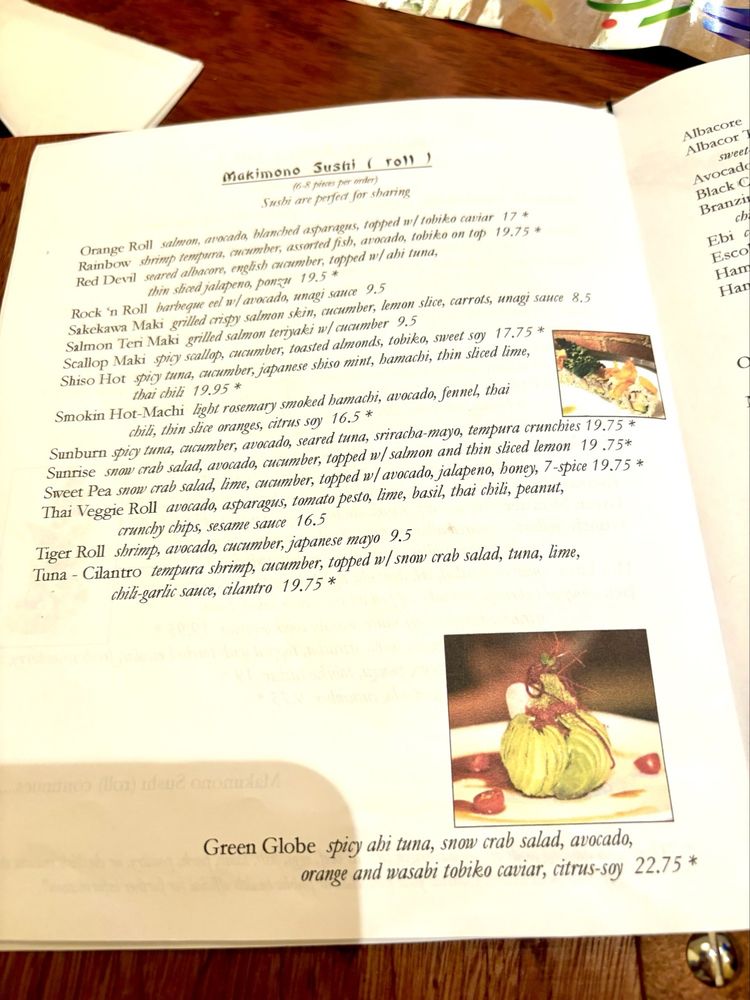 Makimono Sushi ( roll )
(6-8 pieces per order)
Sushi are perfect for sharing
Orange Roll salmon, avocado, blanched asparagus, topped w/ tobiko caviar 17 *
Rainbow shrimp tempura, cucumber, assorted fish, avocado, tobiko on top 19.75 *
Red Devil seared albacore, english cucumber, topped w/ ahi tuna,
thin sliced jalapeno, ponzu 19.5 *
Rock 'n Roll barbeque eel w/ avocado, unagi sauce 9.5
Sakekawa Maki grilled crispy salmon skin, cucumber, lemon slice, carrots, unagi sauce 8.5
Salmon Teri Maki grilled salmon teriyaki w/ cucumber 9.5
Scallop Maki spicy scallop, cucumber, toasted almonds, tobiko, sweet soy 17.75 *
Shiso Hot spicy tuna, cucumber, japanese shiso mint, hamachi, thin sliced lime,
thai chili 19.95 *
Smokin Hot-Machi light rosemary smoked hamachi, avocado, fennel, thai
chili, thin slice oranges, citrus soy 16.5 *
Sunburn spicy tuna, cucumber, avocado, seared tuna, sriracha-mayo, tempura crunchies 19.75 *
Sunrise snow crab salad, avocado, cucumber, topped w/ salmon and thin sliced lemon 19 .75*
Sweet Pea snow crab salad, lime, cucumber, topped w/ avocado, jalapeno, honey, 7-spice 19.75 *
Thai Veggie Roll avocado, asparagus, tomato pesto, lime, basil, thai chili, peanut,
crunchy chips, sesame sauce 16.5
Tiger Roll shrimp, avocado, cucumber, japanese mayo 9.5
Tuna - Cilantro tempura shrimp, cucumber, topped w/ snow crab salad, tuna, lime,
chili-garlic sauce, cilantro 19.75 *
Green Globe spicy ahi tuna, snow crab salad, avocado,
orange and wasabi tobiko caviar, citrus-soy 22.75 *
Albacore
Albacor
sweet
Avocado
Black
Branzin
Ebi
Esco
Ham
Ham